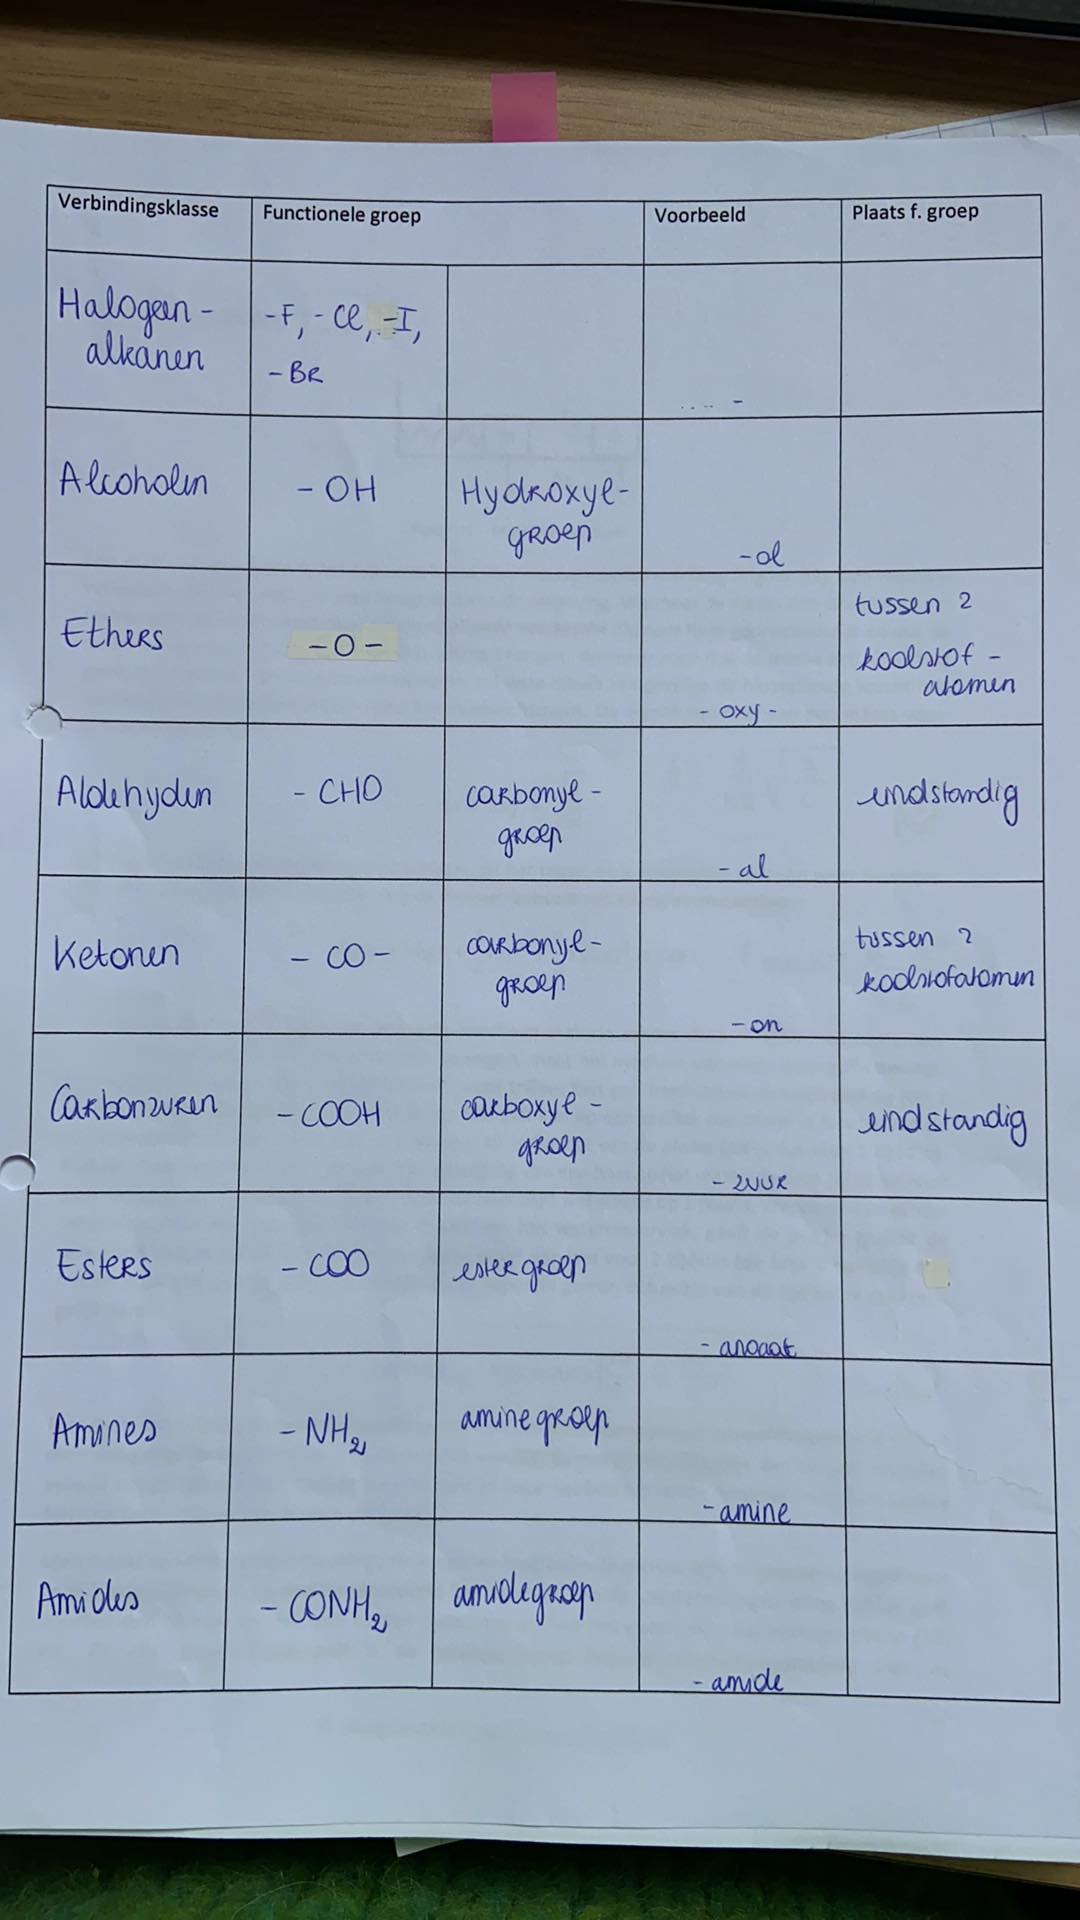 Verbindingsklasse
Functionele groep
Voorbeeld
Plaats f. groep
Halogeen-
alkanen
-F, -Cl, -I,
-BR
.... -
Alcoholen
-OH
Hydroxyl-
groep
-ol
Ethers
-O-
-oxy-
tussen 2
koolstof-
atomen
Aldehyden
-CHO
carbonyl-
groep
-al
eindstandig
Ketonen
-CO-
carbonyl-
groep
-on
tussen 2
koolstofatomen
Carbonzuren
-COOH
carboxyl-
groep
-zuur
eindstandig
Esters
-COO
estergroep
-anoaat
Amines
-NH2
aminegroep
-amine
Amides
-CONH2
amidegroep
-amide